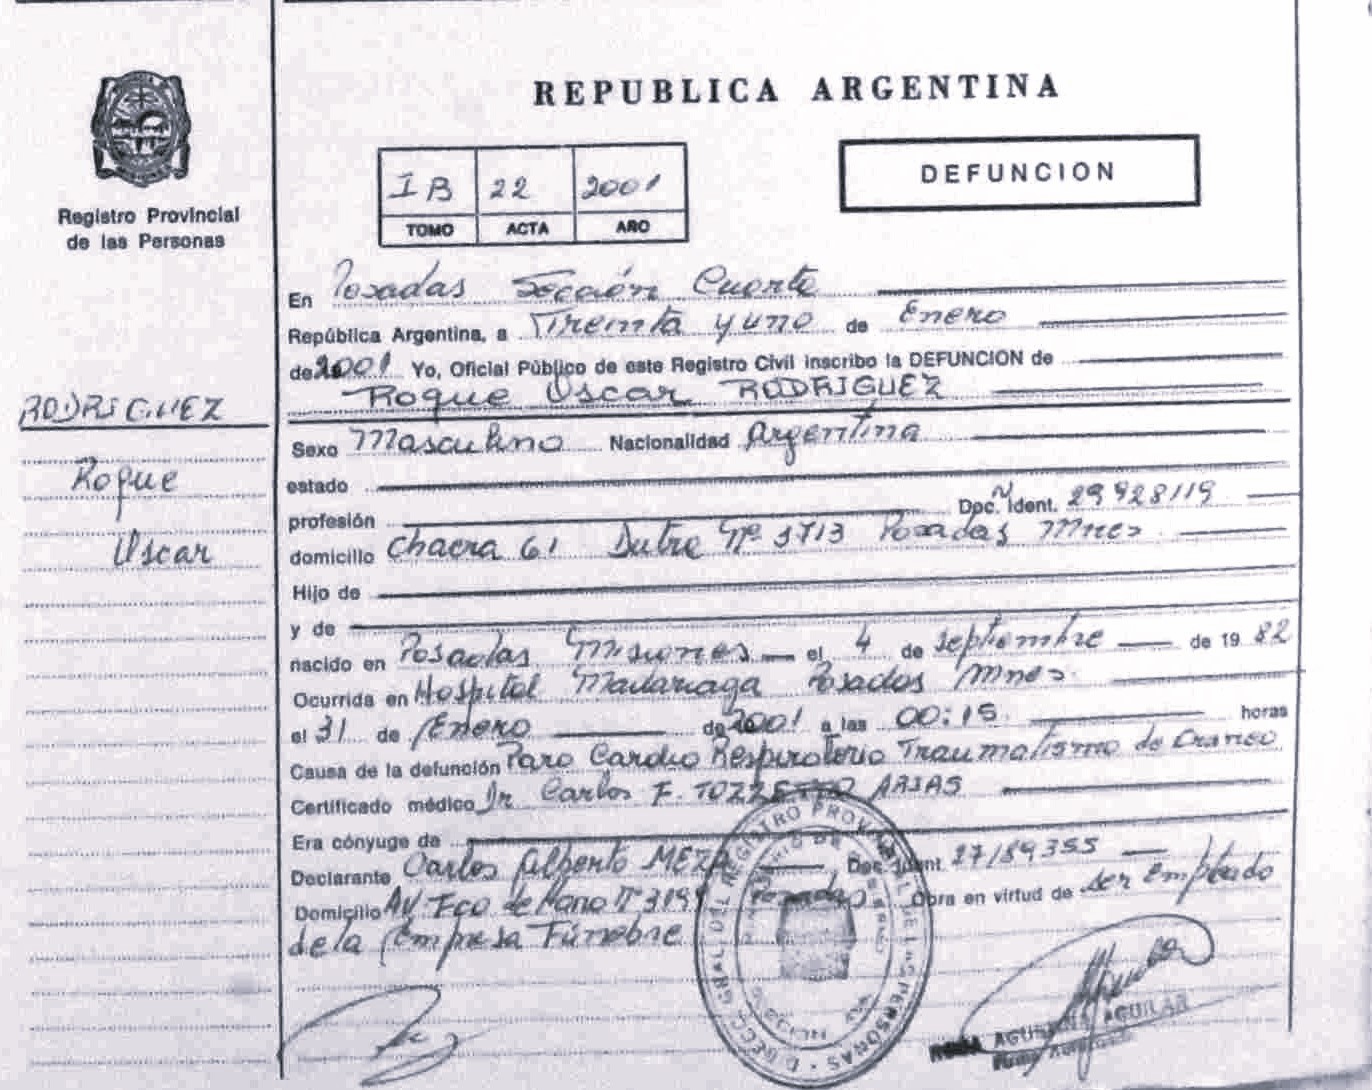 REPUBLICA ARGENTINA
DEFUNCION
Registro Provincial
de las Personas
IB 22 2001
TOMO ACTA AÑO
En Posadas Sección Cuarta
República Argentina, a Treinta y uno de Enero
de 2001 Yo, Oficial Público de este Registro Civil inscribo la DEFUNCION de
Roque Oscar RODRIGUEZ
RODRIGUEZ
Roque
Oscar
Sexo Masculino Nacionalidad Argentina
estado
profesión Doc. Ident. 29928119
domicilio Chacra 61 Nº 3713 Posadas Mnes
Hijo de
y de
nacido en Posadas Misiones el 4 de septiembre de 1982
Ocurrida en Hospital Madariaga Posadas Mnes.
el 31 de Enero de 2001 a las 00:15 horas
Causa de la defunción Paro Cardio Respiratorio Traumatismo de Craneo
Certificado médico Dr Carlos F. TOZZETTO ARIAS
Era cónyuge de
Declarante Carlos Alberto MEZA Doc. Ident. 27189355
Domicilio Av. Fco de Haro Nº Posadas Obra en virtud de ser Empleado
de la Empresa Fúnebre
AGUILAR